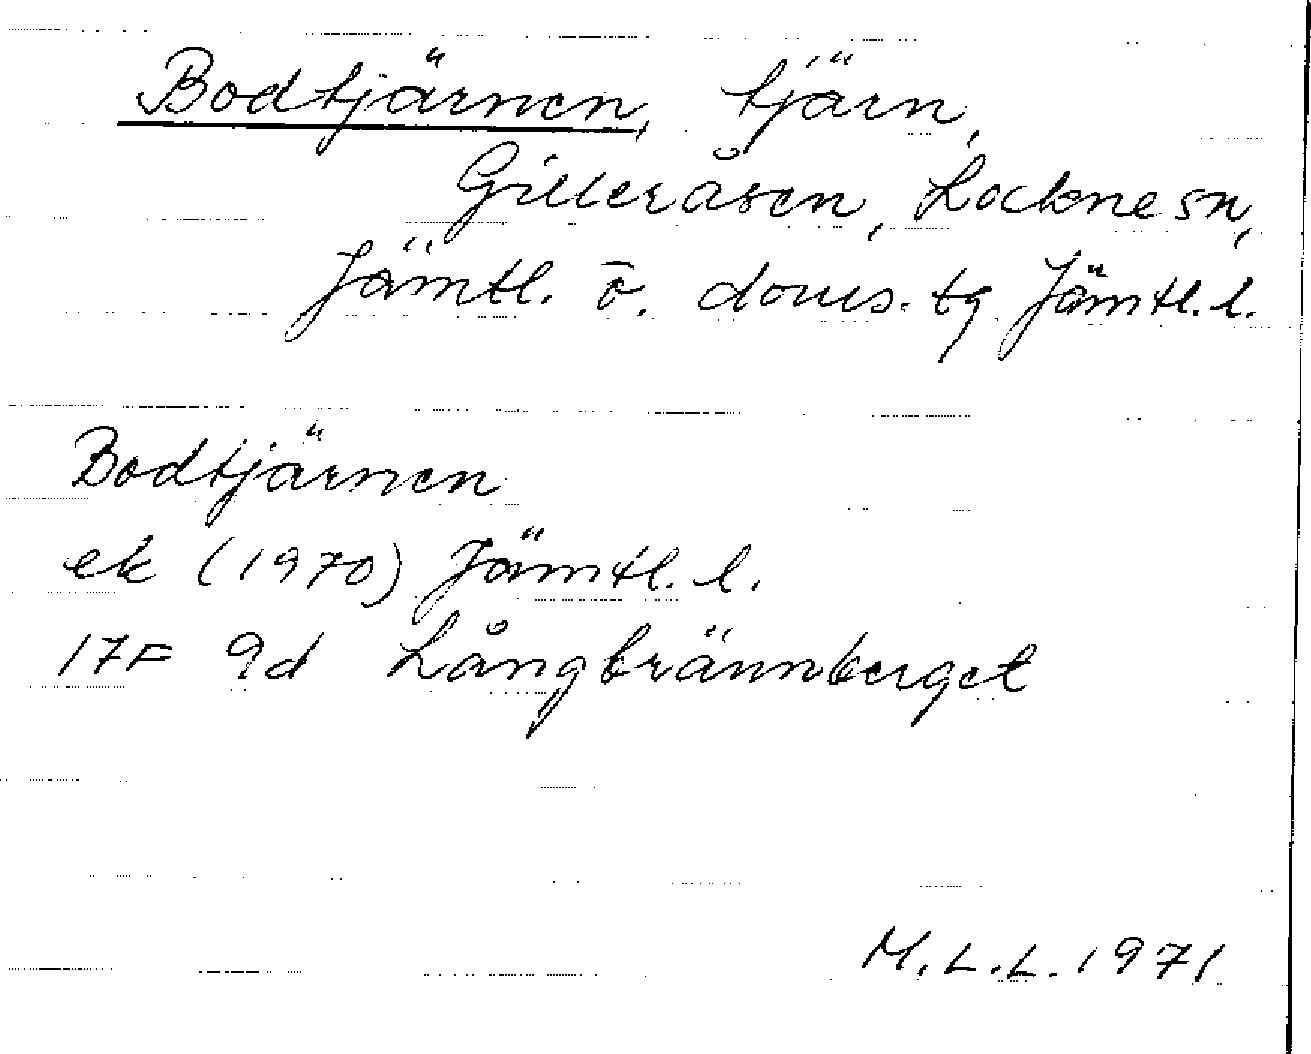 Bodtjärnen, tjärn,
Gilleråsen, Lockne sn,
Jämtl. ö. doms. tg Jämtl. l.
Bodtjärnen
ek (1970) Jämtl. l.
17F 9d Långbrännberget
M.L.L. 1971